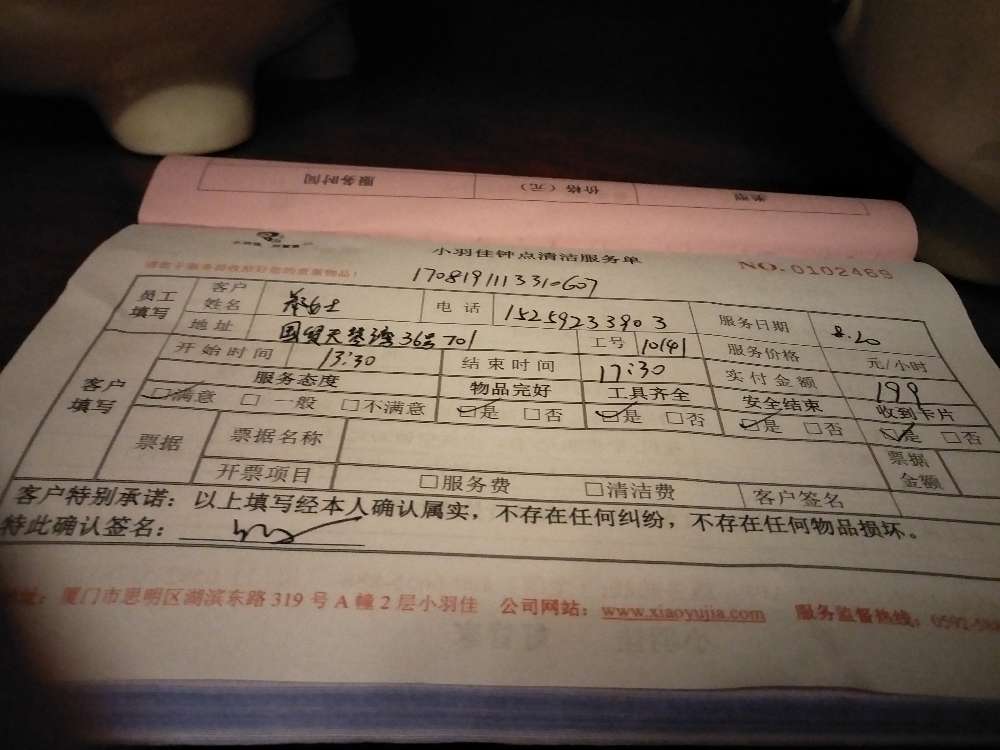 服务时间 价格（元） 类型
小羽佳钟点清洁服务单
NO.0102469
请您于服务前收拾好您的贵重物品！
1708191113310607
员工填写 客户姓名 女士 电话 15259233903 服务日期 8.20
地址 国贸天琴湾36号701 工号 10141 服务价格 元/小时
客户填写 开始时间 13:30 结束时间 17:30 实付金额 199
服务态度 物品完好 工具齐全 安全结束 收到卡片
☑满意 □一般 □不满意 ☑是 □否 ☑是 □否 ☑是 □否 ☑是 □否
票据 票据名称 票据金额
开票项目 □服务费 □清洁费 客户签名
客户特别承诺：以上填写经本人确认属实，不存在任何纠纷，不存在任何物品损坏。
特此确认签名：
地址：厦门市思明区湖滨东路319号A幢2层小羽佳 公司网站：www.xiaoyujia.com 服务监督热线：0592-